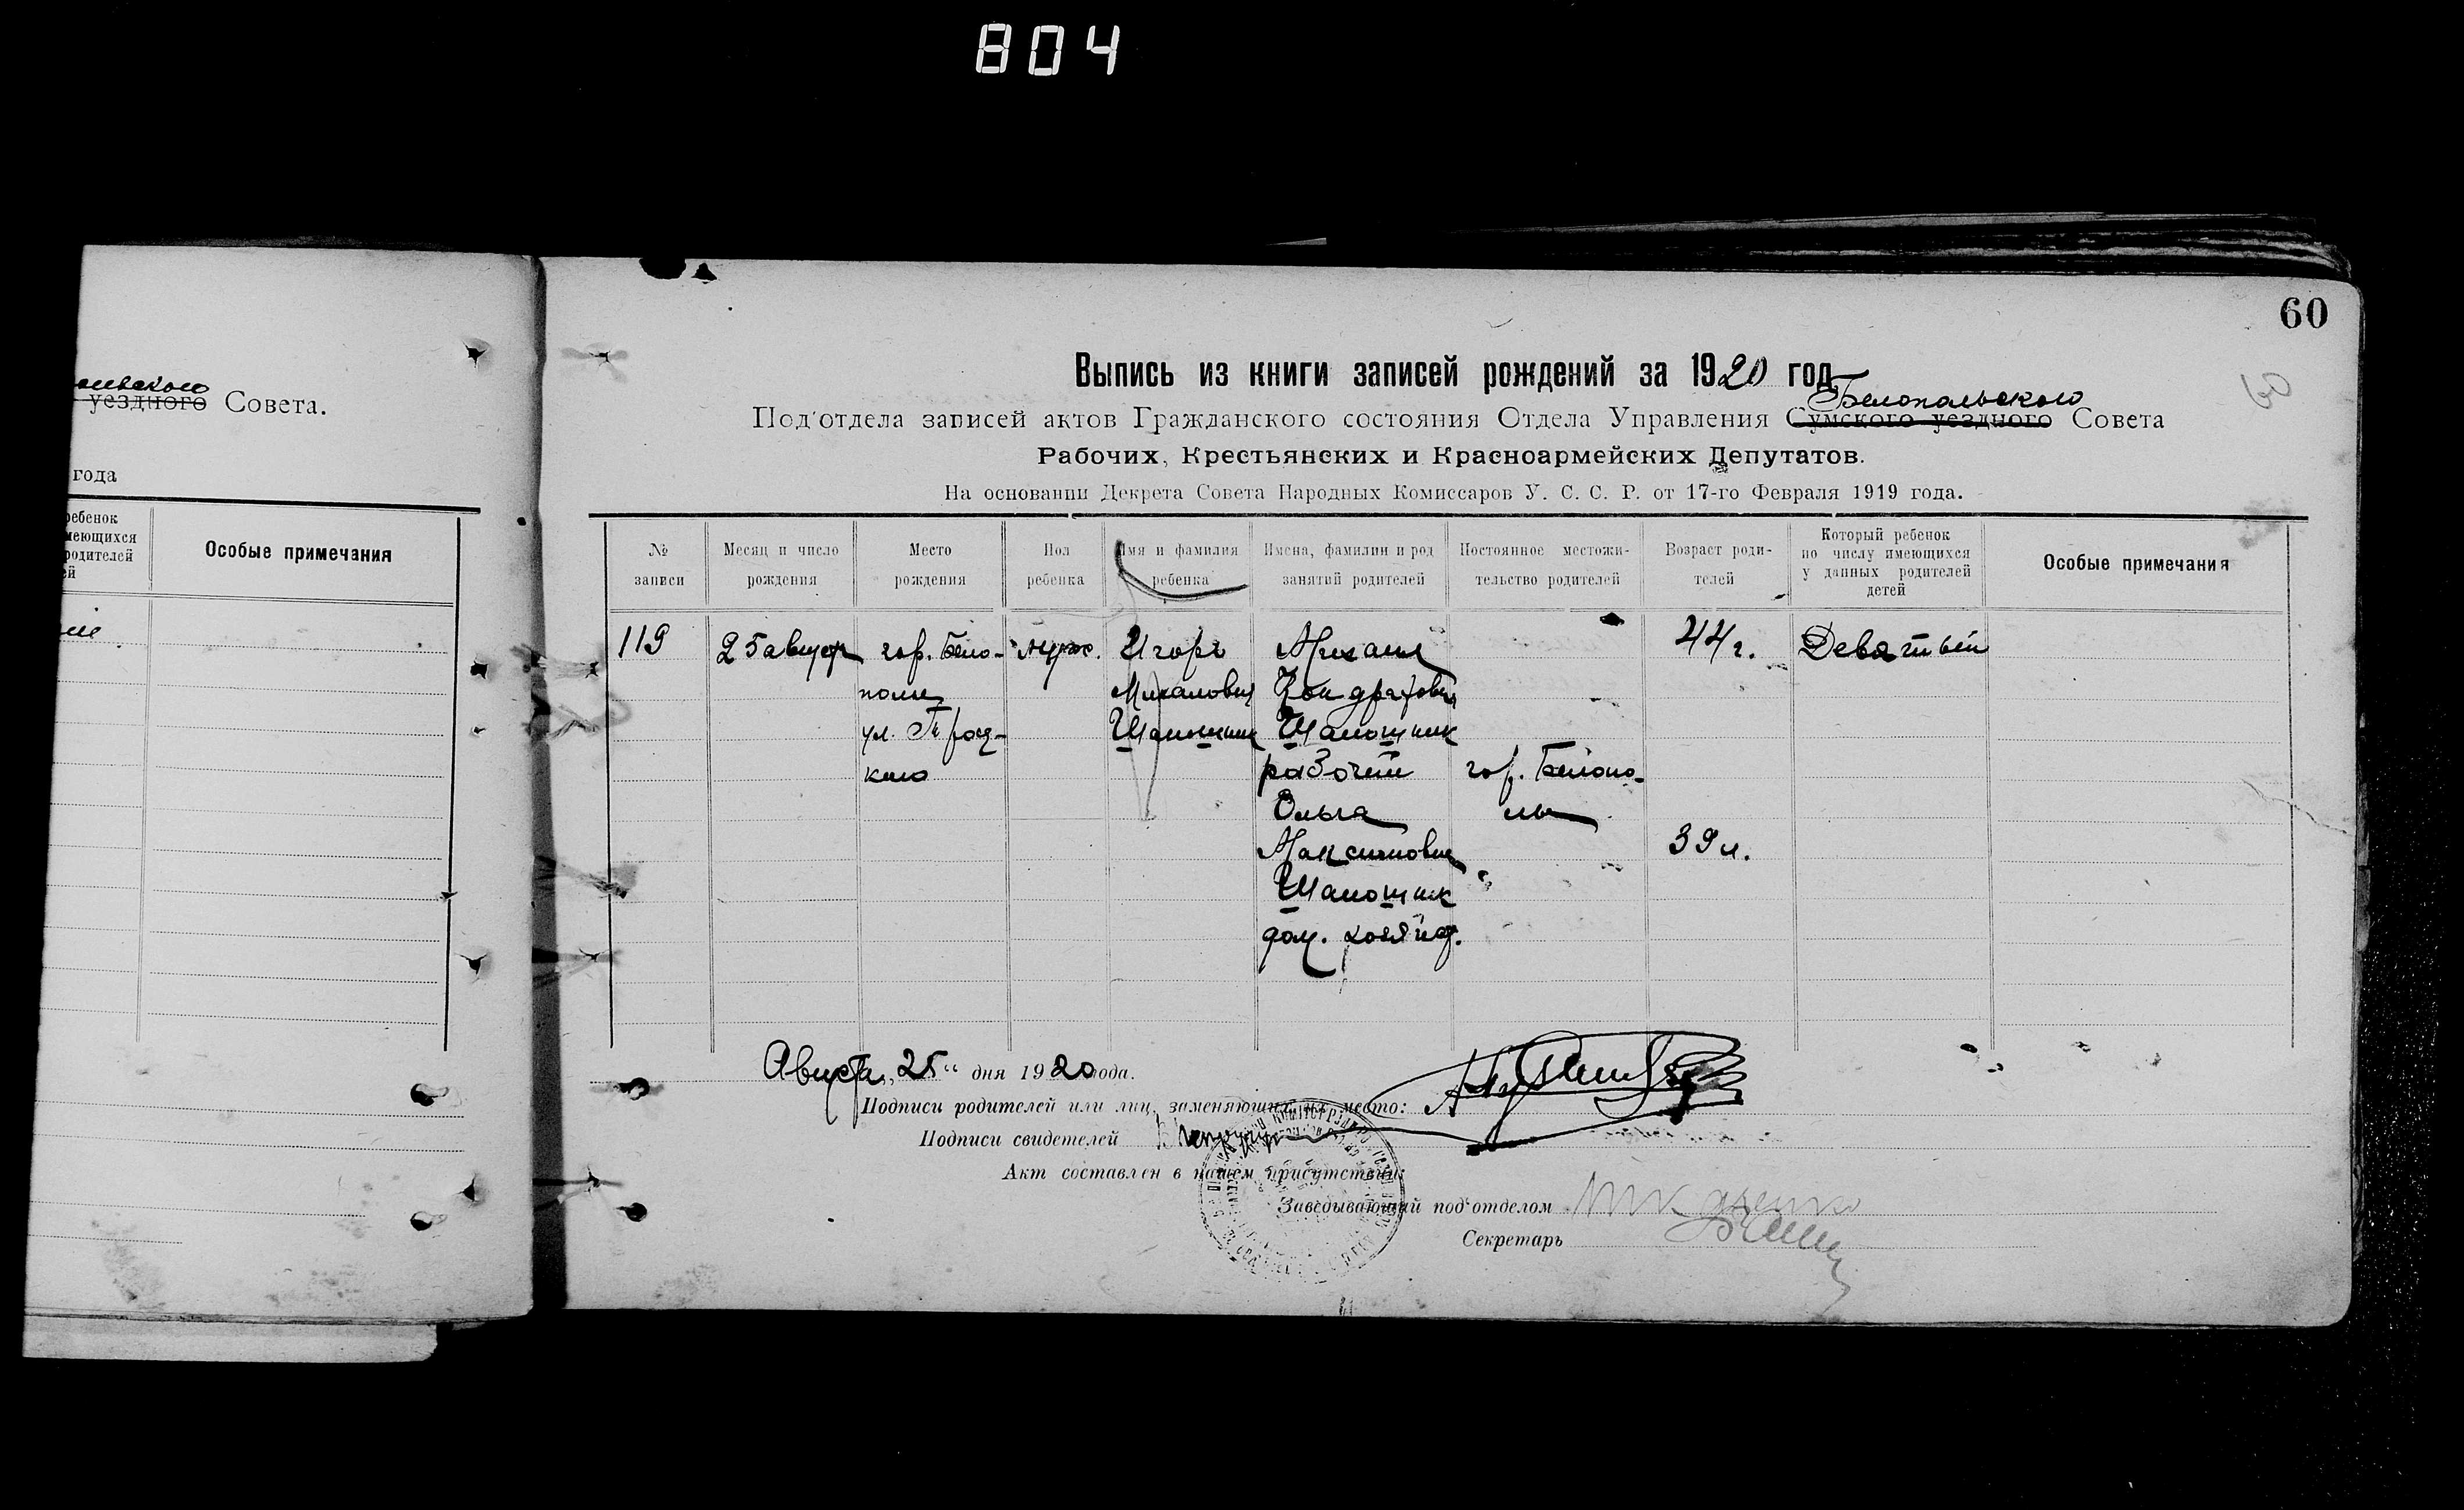 804
60
60
олевского
уездного Совета.
года
ребенок
имеющихся
родителей
ей
Особые примечания
Выпись из книги записей рождений за 1920 год
Белопольского
Под'отдела записей актов Гражданского состояния Отдела Управления Сумского уездного Совета
Рабочих, Крестьянских и Красноармейских Депутатов.
На основании Декрета Совета Народных Комиссаров У. С. С. Р. от 17-го Февраля 1919 года.
№ записи
Месяц и число рождения
Место рождения
Пол ребенка
Имя и фамилия ребенка
Имена, фамилии и род занятий родителей
Постоянное местожительство родителей
Возраст родителей
Который ребенок по числу имеющихся у данных родителей детей
Особые примечания
119
25 август
гор. Бело-
полье
ул. Троц-
кого
муж.
Игорь
Михалович
Михаил
Кондратович
рабочий
Ольга
Максимовна
дом. хозяйка.
гор. Белопо-
ль
44 г.
39 л.
Девятый
Августа „25“ дня 1920 года.
Подписи родителей или лиц, заменяющих их место:
Подписи свидетелей
Акт составлен в нашем присутствии:
Заведывающий под'отделом
Секретарь